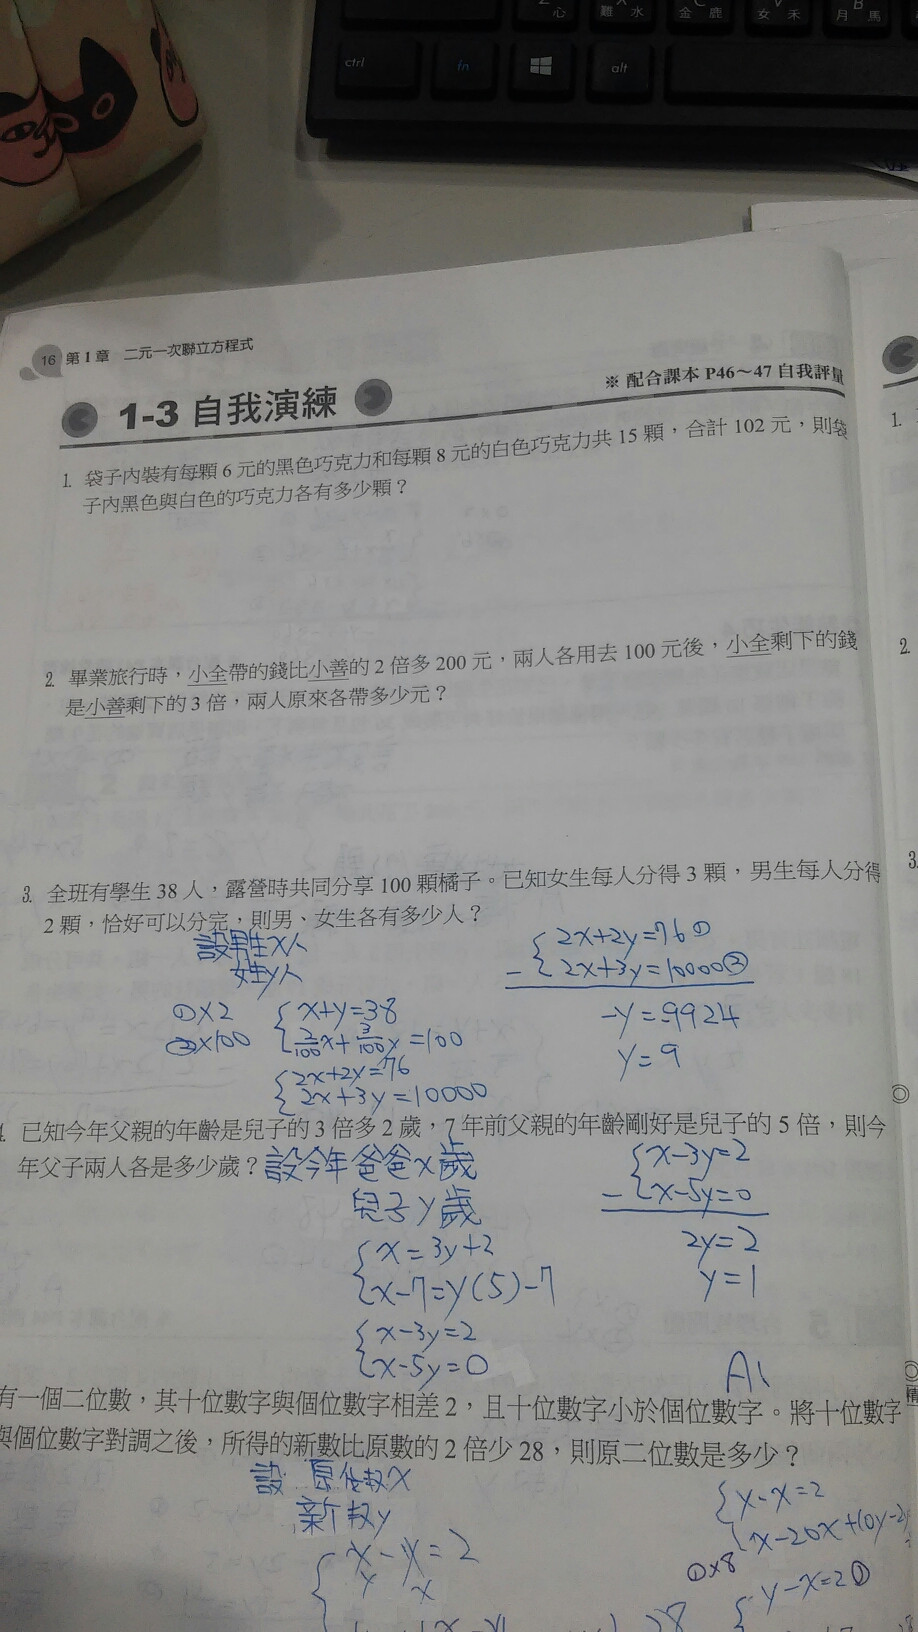 心 難 水 金 鹿 女 禾 月 馬
ctrl fn alt
16 第1章 二元一次聯立方程式
1-3 自我演練
※ 配合課本 P46～47 自我評量
1. 袋子內裝有每顆 6 元的黑色巧克力和每顆 8 元的白色巧克力共 15 顆，合計 102 元，則袋
子內黑色與白色的巧克力各有多少顆？
2. 畢業旅行時，小全帶的錢比小善的 2 倍多 200 元，兩人各用去 100 元後，小全剩下的錢
是小善剩下的 3 倍，兩人原來各帶多少元？
3. 全班有學生 38 人，露營時共同分享 100 顆橘子。已知女生每人分得 3 顆，男生每人分得
2 顆，恰好可以分完，則男、女生各有多少人？
設男生x人
女生y人
①×2
②×100
x+y=38
2/100x+3/100y=100
2x+2y=76
2x+3y=10000
2x+2y=76①
- 2x+3y=10000②
-y=9924
y=9
已知今年父親的年齡是兒子的 3 倍多 2 歲，7 年前父親的年齡剛好是兒子的 5 倍，則今
年父子兩人各是多少歲？
設今年爸爸x歲
兒子y歲
x=3y+2
x-7=y(5)-7
x-3y=2
x-5y=0
x-3y=2
- x-5y=0
2y=2
y=1
有一個二位數，其十位數字與個位數字相差 2，且十位數字小於個位數字。將十位數字
與個位數字對調之後，所得的新數比原數的 2 倍少 28，則原二位數是多少？
設 x
新 y
y-x=2
①×8
y-x=2①
1.
2.
3.